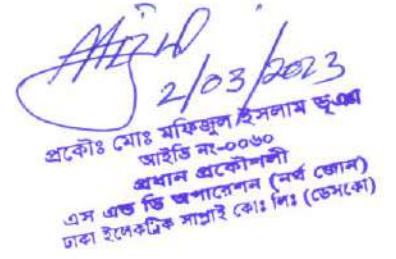 2/03/2023
প্রকৌঃ মোঃ মফিজুল ইসলাম ভূঞা
আইডি নং-০০৬০
প্রধান প্রকৌশলী
এস এন্ড ডি অপারেশন (নর্থ জোন)
ঢাকা ইলেকট্রিক সাপ্লাই কোঃ লিঃ (ডেসকো)